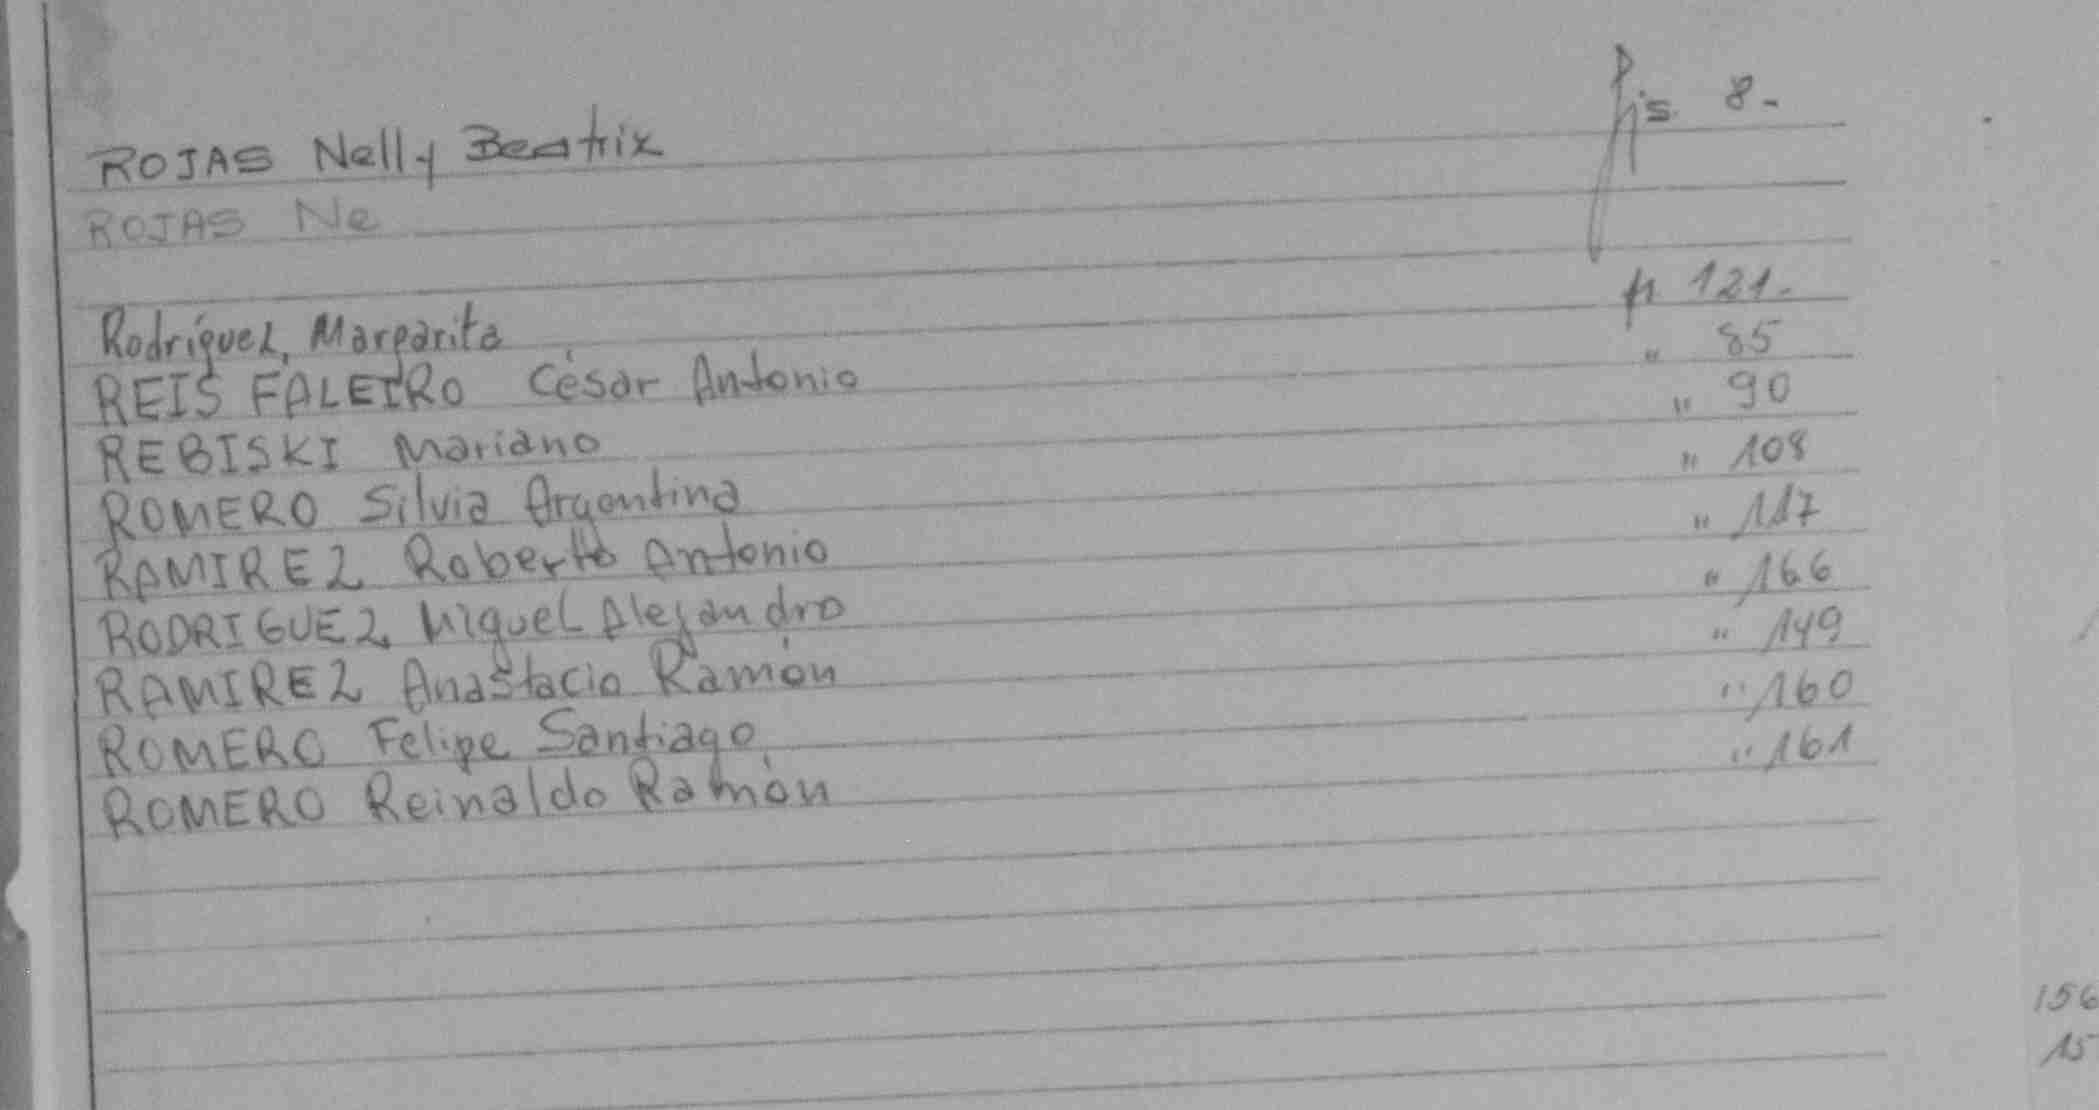 ROJAS Nelly Beatrix fjs. 8.-
ROJAS Ne
Rodríguez, Margarita fs 121.-
REIS FALEIRO César Antonio " 85
REBISKI Mariano " 90
ROMERO Silvia Argentina " 108
RAMIREZ Roberto Antonio " 117
RODRIGUEZ Miguel Alejandro " 166
RAMIREZ Anastacio Ramón " 149
ROMERO Felipe Santiago " 160
ROMERO Reinaldo Ramón " 161
156
15